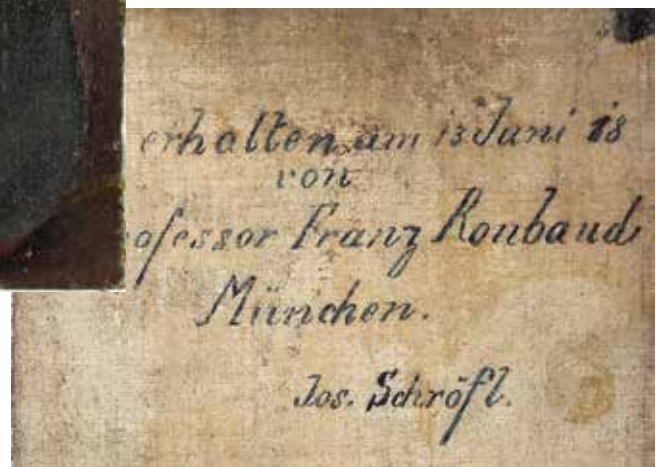 erhalten am 13 Juni 18
von
ofessor Franz Roubaud
München.
Jos. Schröfl.